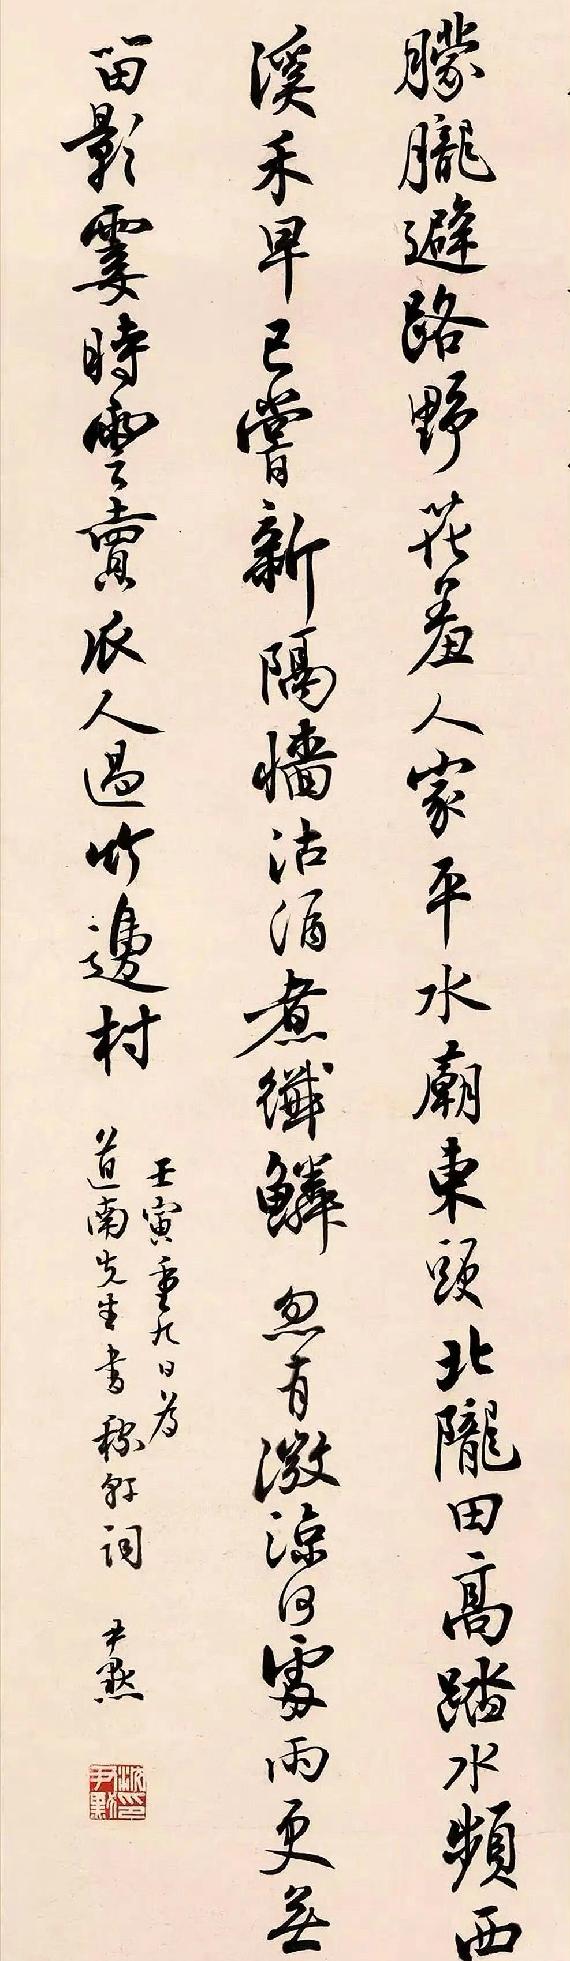 朦朧避路野花羞人家平水廟東頭北隴田高踏水頻西
溪禾早已嘗新隔墻沽酒煮纖鱗忽有微涼何處雨更無
留影霎時雲賣瓜人過竹邊村
壬寅重九日為
道南先生書稼軒詞 尹默
沈尹默印